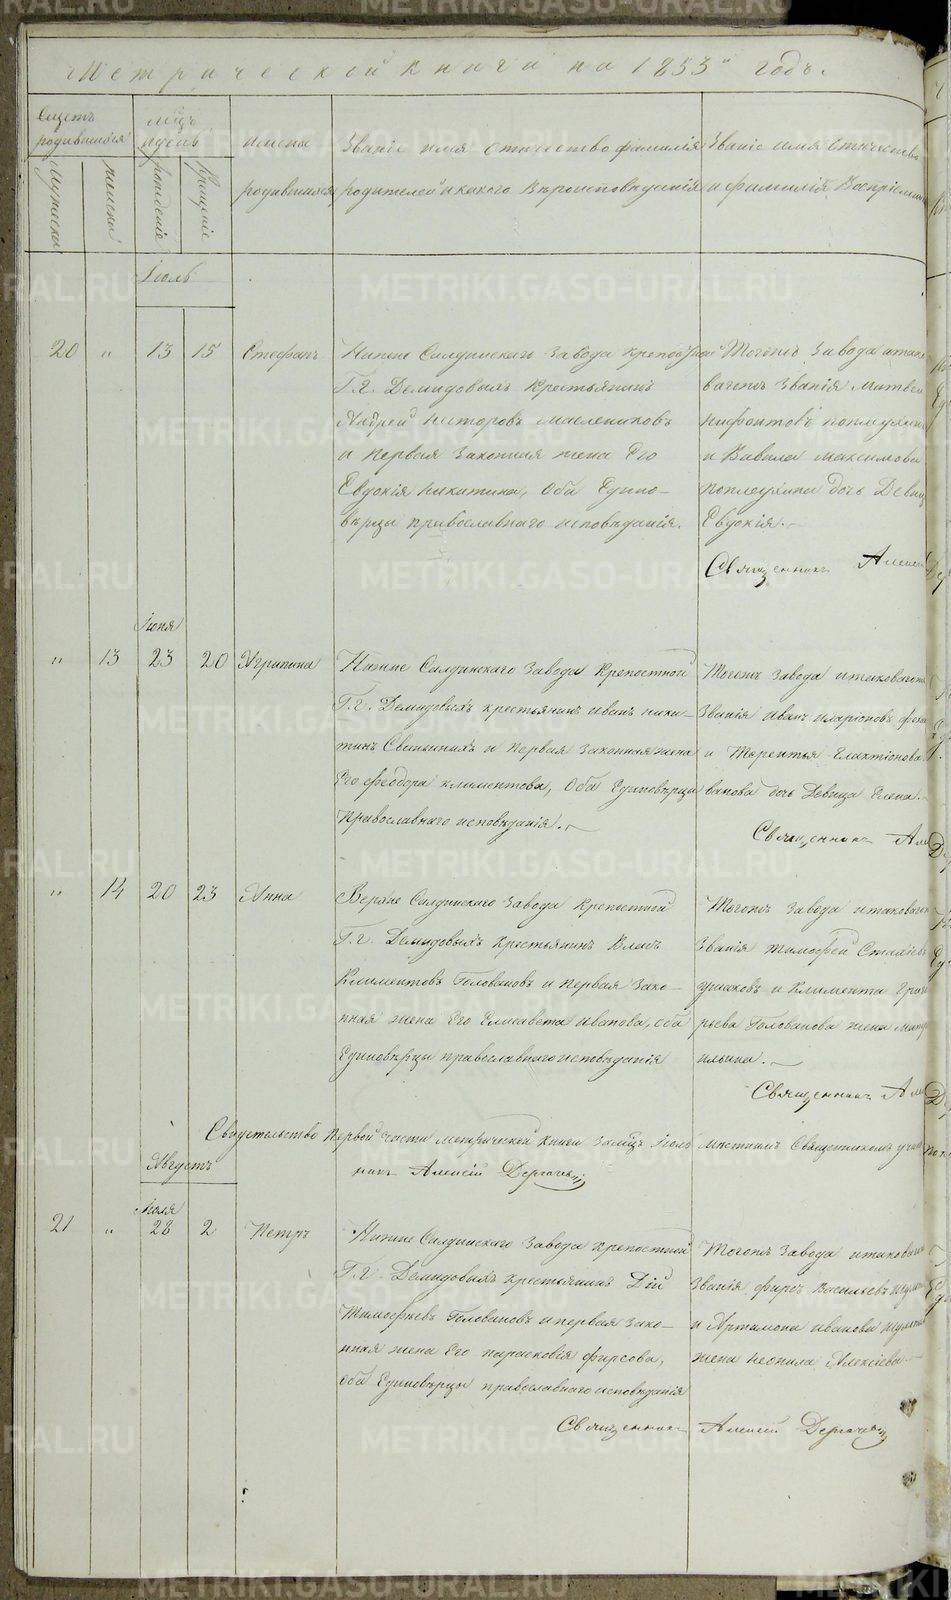 Метрической книги на 1853й годъ.
Счетъ родившихся
Мужеска
женска
Мѣсяцъ и день
рожденіе
крещеніе
Имена родившихся
Званіе имя отчество фамилія родителей и какого Вѣроисповѣданія
Званіе имя отчество и фамилія Воспріемни
Іюль
20 " 13 15 Стефанъ
Нижне Салдинскаго Завода крепостной
Г.г. Демидовыхъ крестьянинъ
Андрей Несторовъ Маслениковъ
и первая законная жена Его
Евдокія Никитина, Оба Едино-
вѣрцы православнаго исповѣданія.
Тогожъ Завода итако
вагожъ Званія Матвей
Нифонтовъ
и Вавила Максимова
дочь Девица
Евдокія.
Священникъ Алексей
Іюня
" 13 23 20 Агрипина
Нижне Салдинскаго Завода Крепостной
Г.г. Демидовыхъ крестьянинъ иванъ ники-
тинъ и первая законная жена
Его Феодора климентова, Оба Единовѣрцы
Православнаго исповѣданія.
Тогожъ Завода итаковагожъ
Званія иванъ иларіоновъ
и Терентья Галактіонова
дочь Девица Елена.
Священникъ Але
" 14 20 23 Анна
Верхне Салдинскаго Завода Крепостной
Г.г. Демидовыхъ Крестьянинъ Власъ
Климентовъ Головановъ и первая Зако-
нная жена Его Елисавета иванова, оба
Единовѣрцы православнаго исповѣданія
Тогожъ Завода итаковагожъ
Званія Тимофей
и Климента Григо
рьева Голованова жена
ильина.
Священникъ Але
Свидетельство Первой части метрической книги за мѣсяцъ Іюль местнымъ Священникомъ
никъ Алексій Дергачевъ
Августъ
Іюля
21 " 28 2 Петръ
Нижне Салдинскаго Завода крепостной
Г.г. Демидовыхъ крестьянинъ Дій
Тимофеевъ Головановъ и первая Зако-
нная жена Его парасковія фирсова,
оба Единовѣрцы православнаго исповѣданія
Тогожъ Завода итаковагожъ
Званія фирсъ Васильевъ
и Артамона иванова
жена неонила Алексіева
Священникъ Алексій Дергачевъ
METRIKI.GASO-URAL.RU